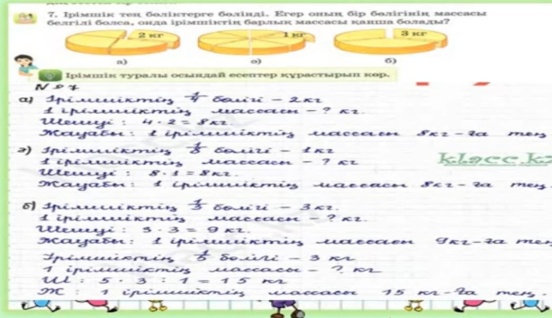 7. Ірімшік тең бөліктерге бөлінді. Егер оның бір бөлігінің массасы
белгілі болса, онда ірімшіктің барлық массасы қанша болады?
2 кг 1 кг 3 кг
а) ә) б)
Ірімшік туралы осындай есептер құрастырып көр.
№ 7
а) Ірімшіктің 1/4 бөлігі – 2 кг
1 ірімшіктің массасы – ? кг.
Шешуі : 4 · 2 = 8 кг
Жауабы : 1 ірімшіктің массасы 8 кг-ға тең
ә) Ірімшіктің 1/8 бөлігі – 1 кг
1 ірімшіктің массасы – ? кг
klass.kz
Шешуі : 8 · 1 = 8 кг.
Жауабы : 1 ірімшіктің массасы 8 кг-ға тең.
б) Ірімшіктің 1/3 бөлігі – 3 кг.
1 ірімшіктің массасы – ? кг.
Шешуі : 3 · 3 = 9 кг.
Жауабы : 1 ірімшіктің массасы 9 кг-ға тең
Ірімшіктің 1/5 бөлігі – 3 кг
1 ірімшіктің массасы – ? кг
Ш : 5 · 3 : 1 = 15 кг
Ж : 1 ірімшіктің массасы 15 кг-ға тең.